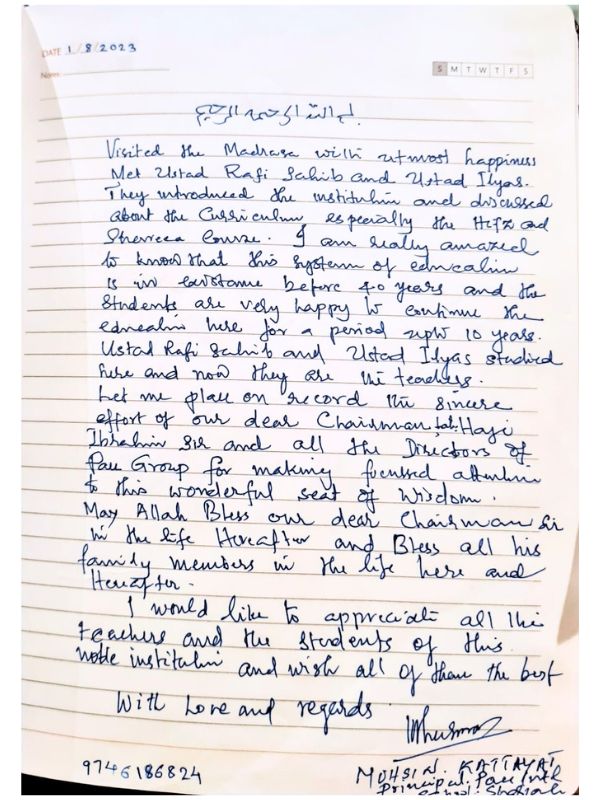 DATE 1/8/2023
Notes
S M T W T F S
بسم الله الرحمن الرحيم
Visited the Madrasa with utmost happiness
Met Ustad Rafi Sahib and Ustad Ilyas.
They introduced the institution and discussed
about the Curriculum especially the Hifz and
Course. I am really amazed
to know that this system of education
is in existance before 40 years and the
students are very happy to continue the
education here for a period upto 10 years.
Ustad Rafi Sahib and Ustad Ilyas studied
here and now they are the teachers.
Let me place on record the sincere
effort of our dear Chairman late Haji
Ibrahim Sir and all the Directors of
Pace Group for making focussed attention
to this wonderful seat of wisdom.
May Allah Bless our dear Chairman Sir
in the life Hereafter and Bless all his
family members in the life here and
Hereafter.
I would like to appreciate all the
teachers and the students of this
noble institution and wish all of them the best
With Love and regards
MUHSIN. KATTAYAT
9746186824
Principal. Pace Intl
School Sharjah